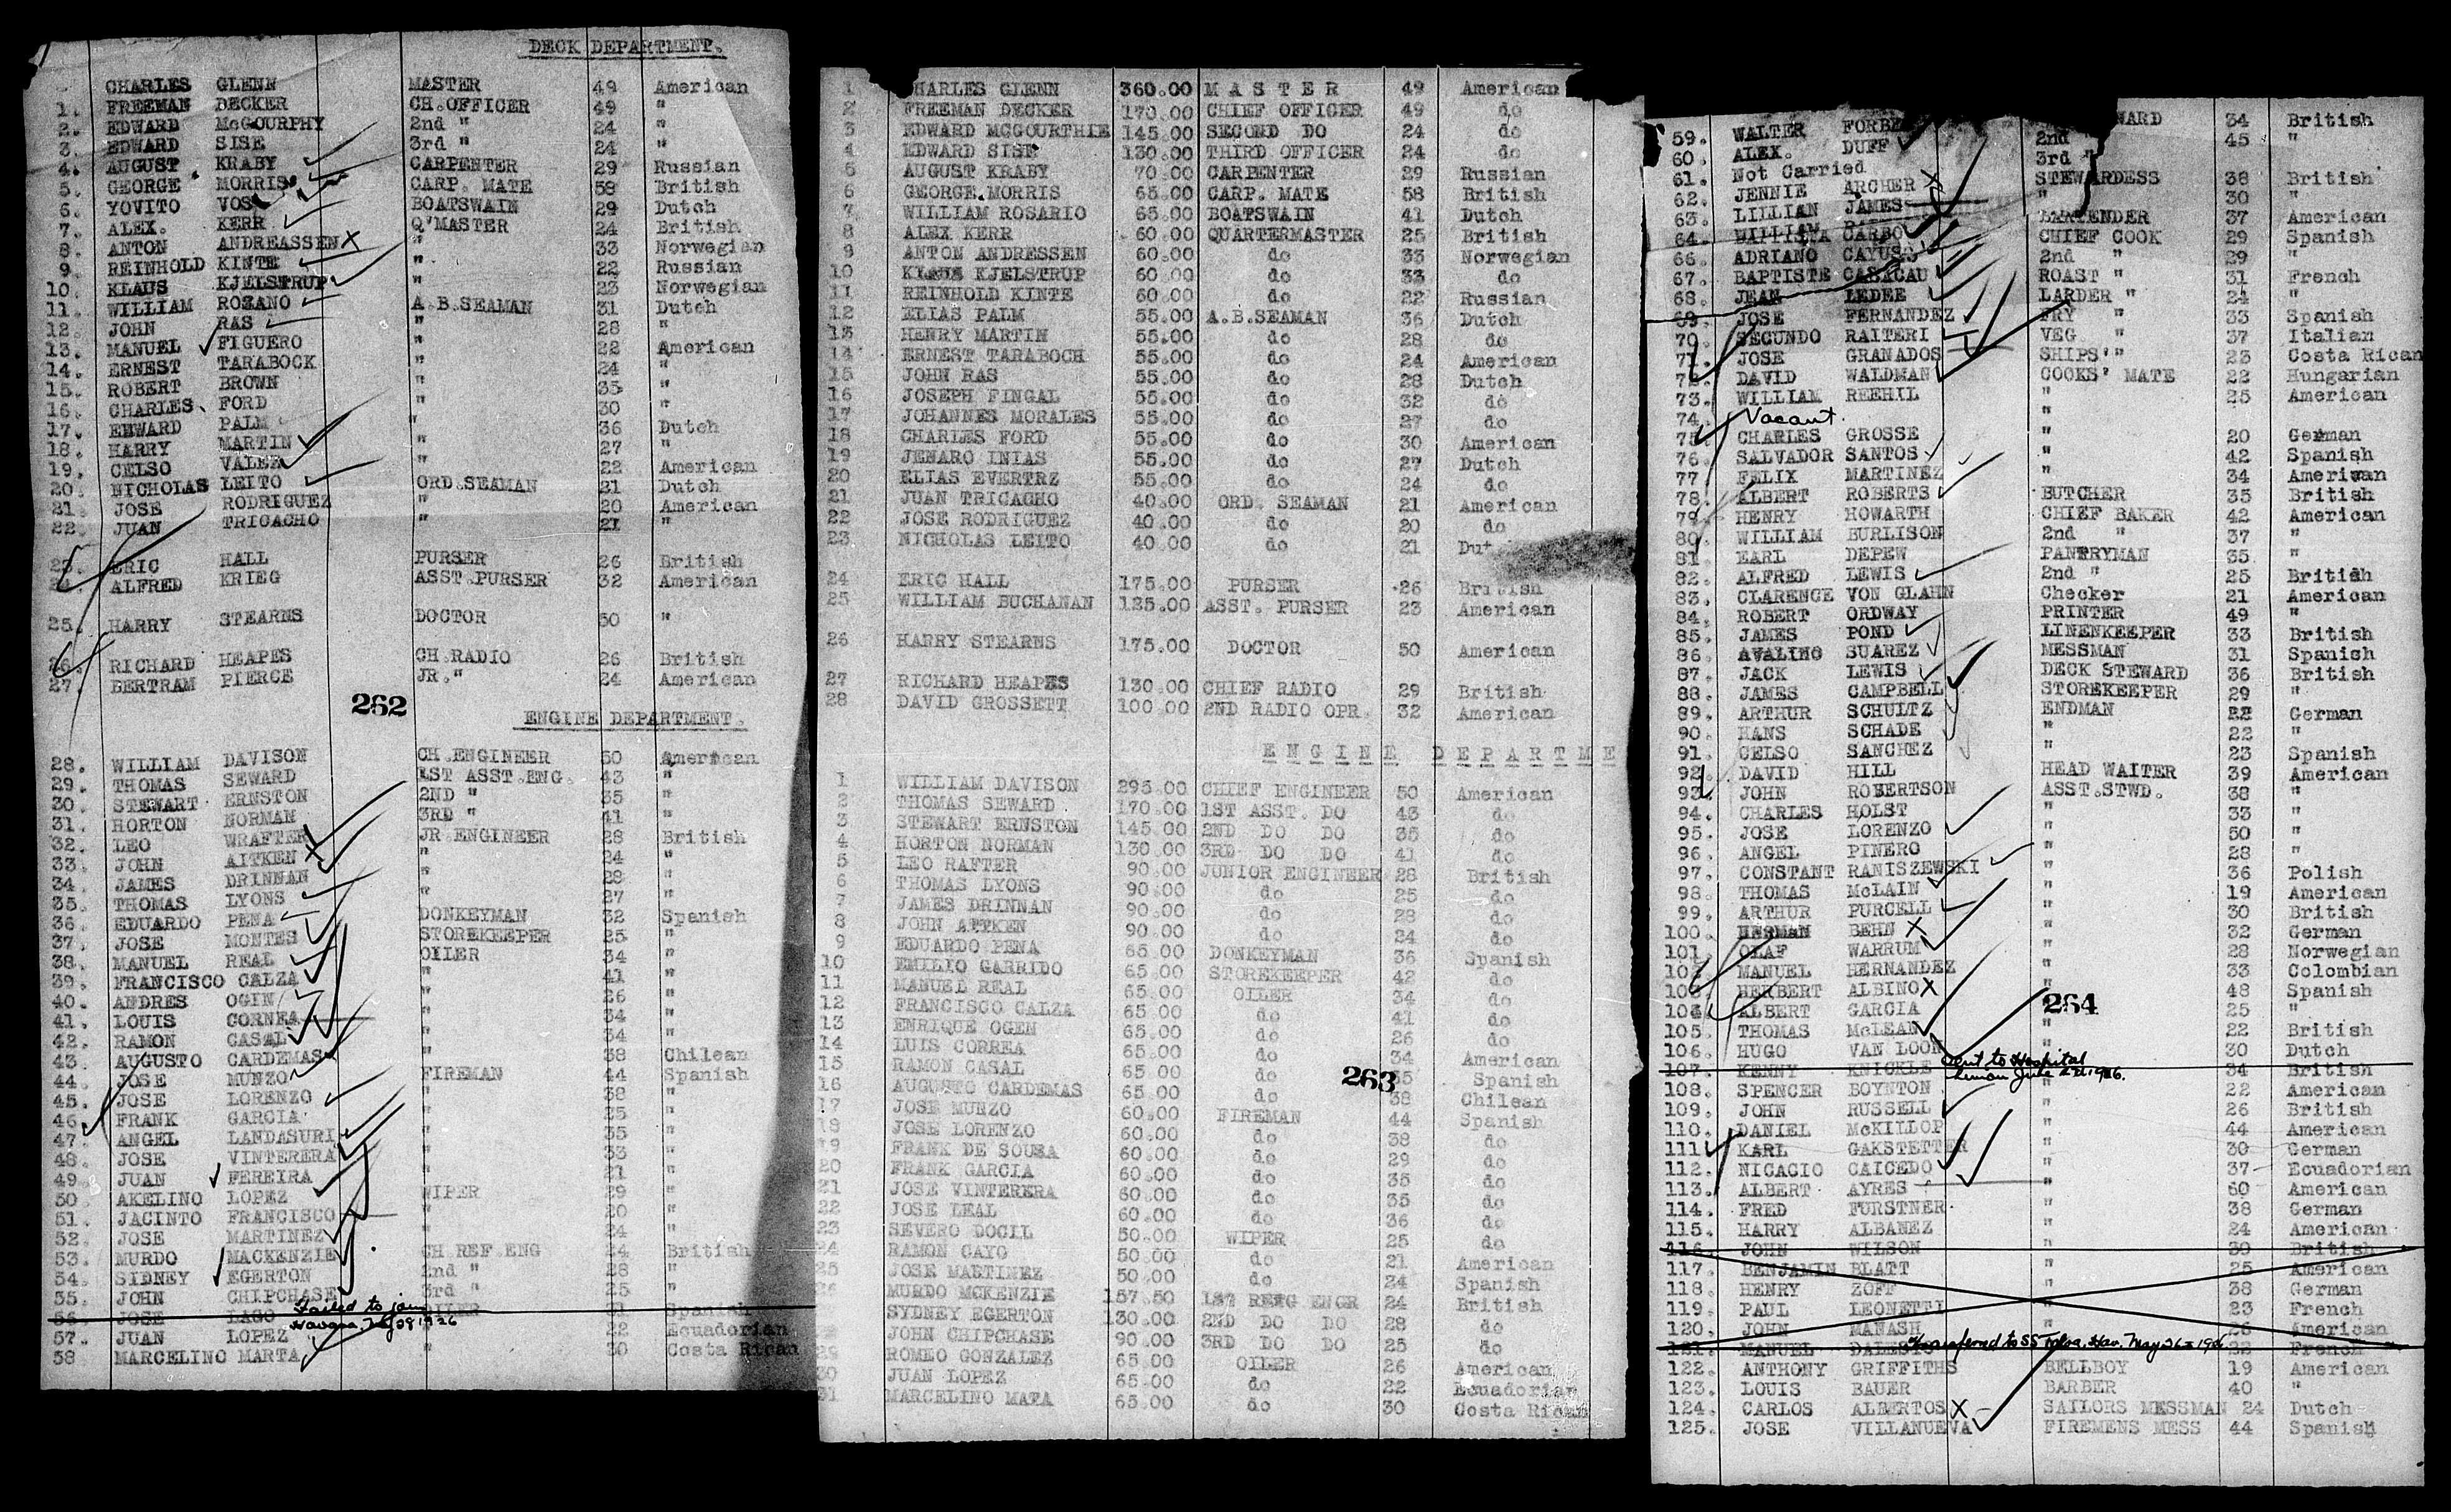 DECK DEPARTMENT.
CHARLES GLENN MASTER 49 American
1. FREEMAN DECKER CH.OFFICER 49 "
2. EDWARD McGOURPHY 2nd " 24 "
3. EDWARD SISE 3rd " 24 "
4. AUGUST KRABY CARPENTER 29 Russian
5. GEORGE MORRIS CARP. MATE 58 British
6. YOVITO VOS BOATSWAIN 29 Dutch
7. ALEX. KERR Q'MASTER 24 British
8. ANTON ANDREASSEN X " 33 Norwegian
9. REINHOLD KINTE " 22 Russian
10. KLAUS KJELSTRUP " 23 Norwegian
11. WILLIAM ROZANO A.B.SEAMAN 31 Dutch
12. JOHN RAS " 28 "
13. MANUEL FIGUERO " 22 American
14. ERNEST TARABOCK " 24 "
15. ROBERT BROWN " 35 "
16. CHARLES FORD " 30 "
17. EDWARD PALM " 36 Dutch
18. HARRY MARTIN " 27 "
19. CELSO VALEE " 22 American
20. NICHOLAS LEITO ORD.SEAMAN 21 Dutch
21. JOSE RODRIGUEZ " 20 American
22. JUAN TRICACHO " 21 "
23. ERIC HALL PURSER 26 British
24. ALFRED KRIEG ASST.PURSER 32 American
25. HARRY STEARNS DOCTOR 50 "
26. RICHARD HEAPES CH.RADIO 26 British
27. BERTRAM PIERCE JR." 24 American
262
ENGINE DEPARTMENT.
28. WILLIAM DAVISON CH.ENGINEER 50 American
29. THOMAS SEWARD 1ST ASST.ENG. 43 "
30. STEWART ERNSTON 2ND " 35 "
31. HORTON NORMAN 3RD " 41 "
32. LEO WRAFTER JR ENGINEER 28 British
33. JOHN AITKEN X " 24 "
34. JAMES DRINNAN " 28 "
35. THOMAS LYONS " 27 "
36. EDUARDO PENA DONKEYMAN 32 Spanish
37. JOSE MONTES STOREKEEPER 25 "
38. MANUEL REAL OILER 34 "
39. FRANCISCO CALZA " 41 "
40. ANDRES OGIN " 26 "
41. LOUIS CORNEA " 34 "
42. RAMON CASAL " 34 "
43. AUGUSTO CARDEMAS " 38 Chilean
44. JOSE MUNZO FIREMAN 44 Spanish
45. JOSE LORENZO " 38 "
46. FRANK GARCIA " 35 "
47. ANGEL LANDASURI " 35 "
48. JOSE VINTERERA " 33 "
49. JUAN FEREIRA " 21 "
50. AKELINO LOPEZ WIPER 29 "
51. JACINTO FRANCISCO " 20 "
52. JOSE MARTINEZ " 24 "
53. MURDO MACKENZIE CH REF.ENG 24 British
54. SIDNEY EGERTON 2nd " 28 "
55. JOHN CHIPCHASE 3rd " 25 "
Failed to join
56. JOSE LAGO OILER 31 Spanish
Havana, 1926
57. JUAN LOPEZ " 22 Ecuadorian
58 MARCELINO MARTA " 30 Costa Rican
1 CHARLES GLENN 360.00 MASTER 49 American
2 FREEMAN DECKER 170.00 CHIEF OFFICER 49 do
3 EDWARD MCGOURTHIE 145.00 SECOND DO 24 do
4 EDWARD SISE 130.00 THIRD OFFICER 24 do
5 AUGUST KRABY 70.00 CARPENTER 29 Russian
6 GEORGE.MORRIS 65.00 CARP. MATE 58 British
7 WILLIAM ROSARIO 65.00 BOATSWAIN 41 Dutch
8 ALEX KERR 60.00 QUARTERMASTER 25 British
9 ANTON ANDRESSEN 60.00 do 33 Norwegian
10 KLAUS KJELSTRUP 60.00 do 33 do
11 REINHOLD KINTE 60.00 do 22 Russian
12 ELIAS PALM 55.00 A.B.SEAMAN 36 Dutch
13 HENRY MARTIN 55.00 do 28 do
14 ERNEST TARABOCH 55.00 do 24 American
15 JOHN RAS 55.00 do 28 Dutch
16 JOSEPH FINGAL 55.00 do 32 do
17 JOHANNES MORALES 55.00 do 27 do
18 CHARLES FORD 55.00 do 30 American
19 JENARO INIAS 55.00 do 27 Dutch
20 ELIAS EVERTRZ 55.00 do 24 do
21 JUAN TRICACHO 40.00 ORD. SEAMAN 21 American
22 JOSE RODRIGUEZ 40.00 do 20 do
23 NICHOLAS LEITO 40.00 do 21 Dut
24 ERIC HALL 175.00 PURSER 26 British
25 WILLIAM BUCHANAN 125.00 ASST. PURSER 23 American
26 HARRY STEARNS 175.00 DOCTOR 50 American
27 RICHARD HEAPES 130.00 CHIEF RADIO 29 British
28 DAVID GROSSETT 100.00 2ND RADIO OPR. 32 American
ENGINE DEPARTME
1 WILLIAM DAVISON 295.00 CHIEF ENGINEER 50 American
2 THOMAS SEWARD 170.00 1ST ASST. DO 43 do
3 STEWART ERNSTON 145.00 2ND DO DO 35 do
4 HORTON NORMAN 130.00 3RD DO DO 41 do
5 LEO RAFTER 90.00 JUNIOR ENGINEER 28 British
6 THOMAS LYONS 90.00 do 25 do
7 JAMES DRINNAN 90.00 do 28 do
8 JOHN AITKEN 90.00 do 24 do
9 EDUARDO PENA 65.00 DONKEYMAN 36 Spanish
10 EMILIO GARRIDO 65.00 STOREKEEPER 42 do
11 MANUEL REAL 65.00 OILER 34 do
12 FRANCISCO CALZA 65.00 do 41 do
13 ENRIQUE OGEN 65.00 do 26 do
14 LUIS CORREA 65.00 do 34 American
15 RAMON CASAL 65.00 do 35 Spanish
263
16 AUGUSTO CARDEMAS 65.00 do 38 Chilean
17 JOSE MUNZO 60.00 FIREMAN 44 Spanish
18 JOSE LORENZO 60.00 do 38 do
19 FRANK DE SOUSA 60.00 do 29 do
20 FRANK GARCIA 60.00 do 35 do
21 JOSE VINTERERA 60.00 do 35 do
22 JOSE LEAL 60.00 do 36 do
23 SEVERO DOCIL 50.00 WIPER 25 do
24 RAMON CAYO 50.00 do 21 American
25 JOSE MARTINEZ 50.00 do 24 Spanish
26 MURDO MCKENZIE 157.50 1ST REFG ENGR 24 British
SYDNEY EGERTON 130.00 2ND DO DO 28 do
JOHN CHIPCHASE 90.00 3RD DO DO 25 do
29 ROMEO GONZALEZ 65.00 OILER 26 American
30 JUAN LOPEZ 65.00 do 22 Ecuadorian
31 MARCELINO MATA 65.00 do 30 Costa Rican
59. WALTER FORBE WARD 34 British
60. ALEX. DUFF 2nd 45 "
61. Not Carried 3rd "
62. JENNIE ARCHER X STEWARDESS 38 British
63. LILLIAN JAMES " 30 "
64. CARBO BARTENDER 37 American
66. ADRIANO CAYUSO CHIEF COOK 29 Spanish
67. BAPTISTE CASACAU 2nd " 29 "
68. JEAN LEDEE ROAST " 31 French
LARDER " 24 "
69. JOSE FERNANDEZ FRY " 33 Spanish
70. SECUNDO RAITERI VEG " 37 Italian
71. JOSE GRANADOS SHIPS'" 23 Costa Rican
72. DAVID WALDMAN COOKS' MATE 22 Hungarian
73. WILLIAM REEHIL " 25 American
74. Vacant. "
75. CHARLES GROSSE " 20 German
76. SALVADOR SANTOS " 42 Spanish
77. FELIX MARTINEZ " 34 American
78. ALBERT ROBERTS BUTCHER 35 British
79. HENRY HOWARTH CHIEF BAKER 42 American
80. WILLIAM BURLISON 2nd " 37 "
81. EARL DEPEW PANTRYMAN 35 "
82. ALFRED LEWIS 2nd " 25 British
83. CLARENCE VON GLAHN Checker 21 American
84. ROBERT ORDWAY PRINTER 49 "
85. JAMES POND LINENKEEPER 33 British
86. AVALINO SUAREZ MESSMAN 31 Spanish
87. JACK LEWIS DECK STEWARD 36 British
88. JAMES CAMPBELL STOREKEEPER 29 "
89. ARTHUR SCHULTZ ENDMAN 22 German
90. HANS SCHADE " 22 "
91. CELSO SANCHEZ " 23 Spanish
92. DAVID HILL HEAD WAITER 39 American
93. JOHN ROBERTSON ASST.STWD. 38 "
94. CHARLES HOLST " 33 "
95. JOSE LORENZO " 50 "
96. ANGEL PINERO " 28 "
97. CONSTANT RANISZEWSKI " 36 Polish
98. THOMAS McLAIN " 19 American
99. ARTHUR PURCELL " 30 British
100. HERMAN BEHN X " 32 German
101. OLAF WARRUM " 28 Norwegian
102. MANUEL HERNANDEZ " 33 Colombian
103. HERBERT ALBINO X " 48 Spanish
264
104. ALBERT GARCIA " 25 "
105. THOMAS McLEAN " 22 British
106. HUGO VAN LOON " 30 Dutch
Sent to Hospital
107. KENNY KNICKLE " 34 British
Limon June 2d 1926.
108. SPENCER BOYNTON " 22 American
109. JOHN RUSSELL " 26 British
110. DANIEL McKILLOP " 44 American
111. KARL GAKSTETTER " 30 German
112. NICACIO CAICEDO " 37 Ecuadorian
113. ALBERT AYRES " 60 American
114. FRED FURSTNER " 38 German
115. HARRY ALBANEZ " 24 American
116. JOHN WILSON " 30 British
117. BENJAMIN BLATT " 25 American
118. HENRY ZOFF " 38 German
119. PAUL LEONETTI " 23 French
120. JOHN MANASH " 26 American
Transferred to SS Toloa, Hav. May 26 1926
121. MANUEL 22 French
122. ANTHONY GRIFFITHS BELLBOY 19 American
123. LOUIS BAUER BARBER 40 "
124. CARLOS ALBERTOS X SAILORS MESSMAN 24 Dutch
125. JOSE VILLANUEVA FIREMENS MESS 44 Spanish